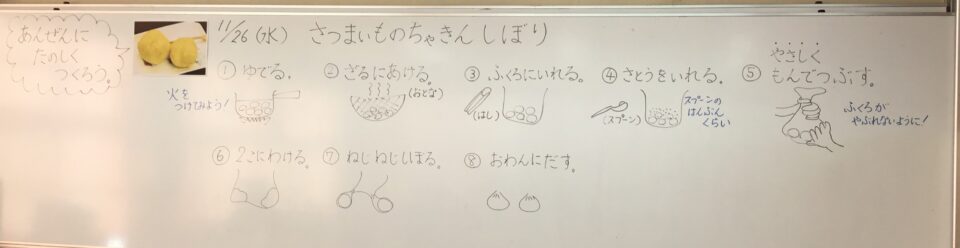 あんぜんに
たのしく
つくろう。
11/26(水) さつまいものちゃきんしぼり
① ゆでる。
火を
つけてみよう!
② ざるにあける。
(おとな)
③ ふくろにいれる。
(はし)
④ さとうをいれる。
(スプーン)
スプーンの
はんぶん
くらい
⑤ やさしく
もんでつぶす。
ふくろが
やぶれないように!
⑥ 2こにわける。
⑦ ねじねじしぼる。
⑧ おわんにだす。